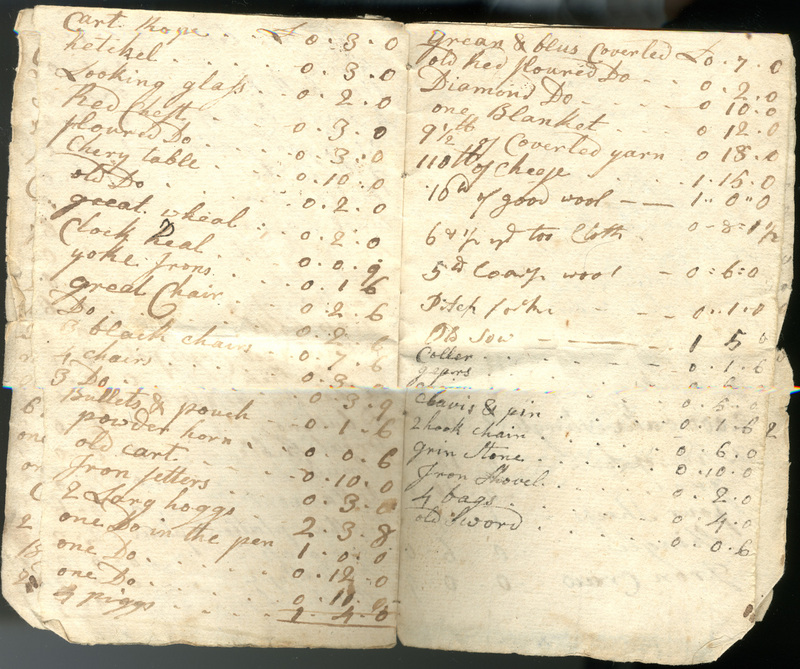 Cart Rope . £ 0 . 3 . 0
hetchel . . 0 . 3 . 0
Looking glass . 0 . 2 . 0
Red Chest . . 0 . 3 . 0
floured Do . . 0 . 3 . 0
Chery table . . 0 . 10 . 0
old Do . . 0 . 2 . 0
great wheal . . 0 . 2 . 0
Clock Real . . 0 . 0 . 9
yoke Irons . . 0 . 1 6
great Chair . . 0 . 2 . 6
Do . . 0 . 2 . 6
3 black chairs . 0 . 7 . 6
4 chairs . . 0 . 3 .
3 Do . . 0 . 3 . 9
Bullets & pouch . 0 . 1 . 6
powder horn . . 0 . 0 . 6
old cart . . 0 . 10 . 0
Iron fetters . . 0 . 3 . 0
2 Larg hoggs . 2 . 3 . 8
one Do in the pen 1 . 0 . 0
one Do . . 0 . 12 . 0
one Do . . 0 . 11 .
4 piggs . . 1 . 4 . 0
grean & blue Coverled £0 . 7 . 0
old Red floured Do - - 0 . 2 . 0
Diamond Do - - 0 10 . 0
one Blanket - 0 12 . 0
9 1/2 lb of Coverled yarn 0 18 . 0
110 lb of Cheese . 1 . 16 . 0
16 lb of good wool - — 1 " 0 " 0
6 & 1/2 yd tow Cloth . 0 - 8 = 1 1/2
5 lb Coars wool - 0 : 6 : 0
Pitch forke . . 0 . . 1 . 0
Old Sow - — - 1 5 0
Coller . . . 0 . 1 . 6
gears
Clavis & pin . . 0 . 5 . 0
2 hook chain . . 0 . 1 . 6
grin Stone . . 0 . 6 . 0
Iron Shovel . . 0 . 10 . 0
4 bags . . 0 . 2 . 0
old Sword . . 0 . 4 . 0
0 . 0 . 6